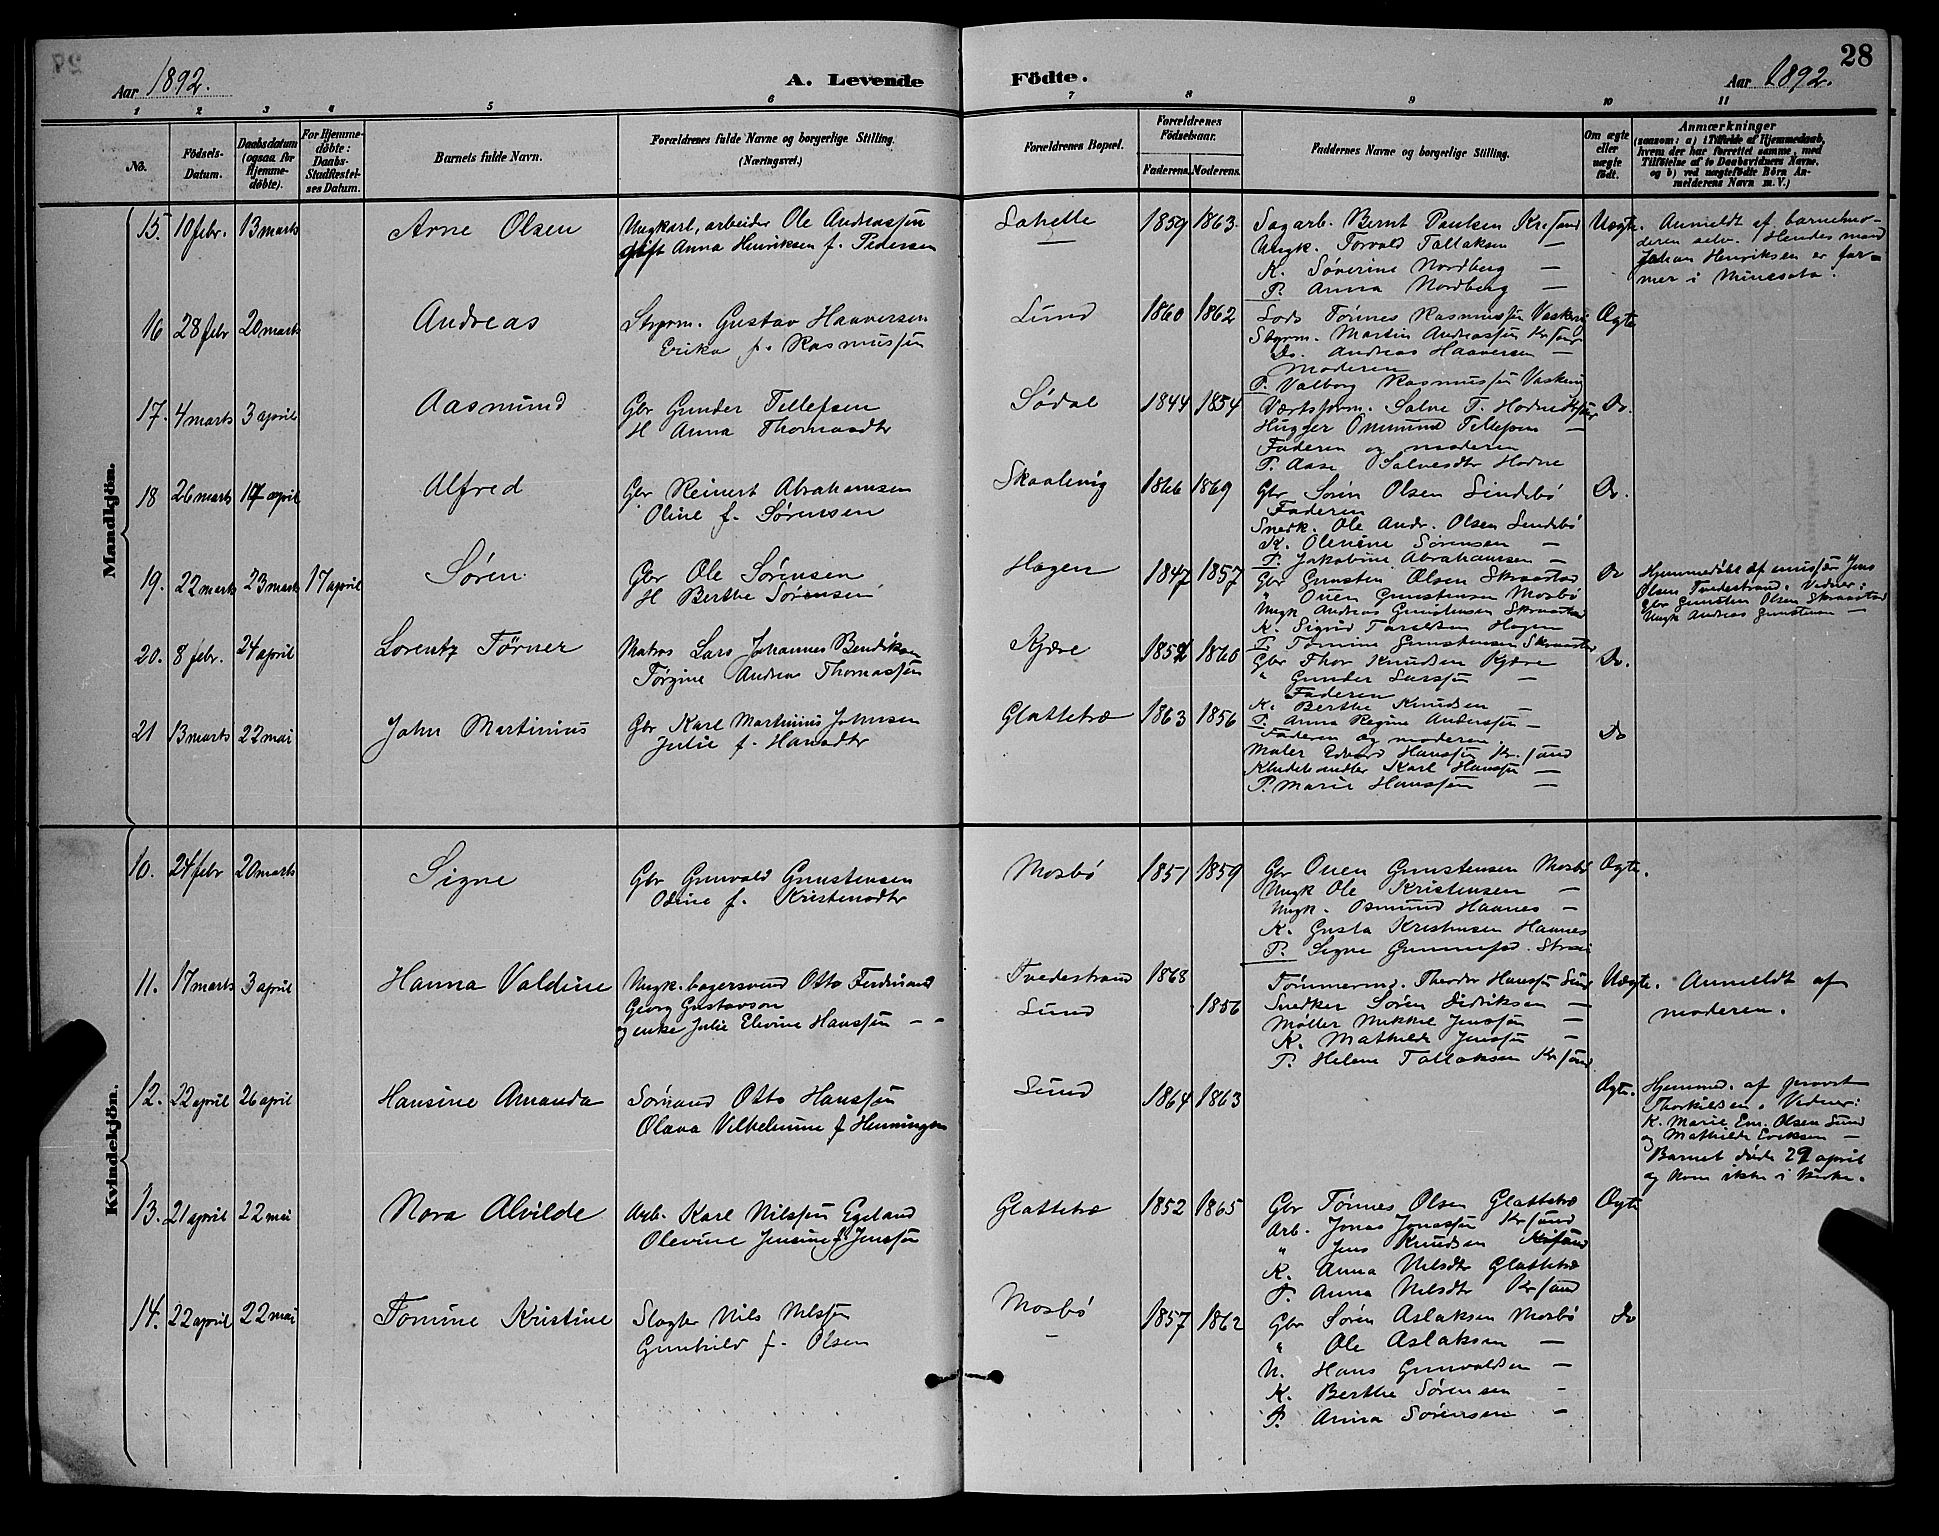 Aar 1892.
A. Levende
Födte.
Aar 1892.
28
1 2 3 4 5 6 7 8 9 10 11
No.
Födsels-Datum.
Daabsdatum (ogsaa for Hjemme-döbte).
For Hjemme-döbte: Daabs-Stadfæstel-ses Datum.
Barnets fulde Navn.
Forældrenes fulde Navne og borgerlige Stilling. (Næringsvei.)
Forældrenes Bopæl.
Forældrenes Födselsaar.
Faderens. Moderens.
Faddernes Navne og borgerlige Stilling.
Om ægte eller uægte födt.
Anmærkninger
(saasom: a) i Tilfælde af Hjemmedaab, hvem der har forrettet samme, med Tilföielse af to Daabsvidners Navne. og b) ved uægtefödte Börn An-melderens Navn m. V.)
Mandkjön.
15. 10 febr. 13 marts
Arne Olsen
Ungkarl, arbeider Ole Andreassen
gift Anna Henriksen f. Pedersen
Lahelle
1859 1863.
Sagarb. Bernt Paulsen Kr.sand
Ungk. Torvald Tallaksen —
K. Söverine Nordberg —
P. Anna Nordberg —
Uægte.
Anmeldt af barnemo-
deren selv. Hendes mand
Johan Henriksen er far-
mer i Minesota.
16 28 febr 20 marts
Andreas
Styrm. Gustav Haaversen
Erika f. Rasmussen
Lund
1860 1862
Lods Tönnes Rasmussen Vaskeri
Styrm. Martin Andreassen Kr.sand
Do. Andreas Haaversen —
Moderen
P. Valborg Rasmussen Vaskeri
Ægte
17. 4 marts 3 april
Aasmund
Gbr Gunder Tellefsen
H Anna Thomasdtr
Södal
1844 1854
Værtsform. S. T. Hodne Kr.sand
Hugger Ommund Tellefsen —
Faderen og moderen
P. Aase Salvesdtr Hodne
Do.
18 26 marts 17 april
Alfred
Gbr Reinert Abrahamsen
Oline f. Sörensen
Skaalevig
1866 1869
Gbr Sören Olsen Lindebö
Faderen
Snedk. Ole Andr. Olsen Lindebö
K. Olevine Sörensen —
P. Jakobine Abrahamsen —
Do.
19. 22 marts 23 marts 17 april
Sören
Gbr Ole Sörensen
H Berthe Sörensen
Hagen
1847 1857
Gbr Gunsten Olsen Skraastad
" Ouen Gunstensen Mosbö
Ungk Andreas Gunstensen Skraastad
K. Sigrid Hagen
P. Tomine Gunstensen Skraastad
Do
Hjemmedöbt af emissær Jens
Olsen Tvedestrand. Vidner:
Gbr Gunsten Olsen Skraastad
Ungk Andreas Gunstensen —
20. 8 febr. 24 april
Lorentz Törner
Matros Lars Johannes Bendiksen
Törgine Andrea Thomassen
Kjære
1852 1860
Gbr Thor Knudsen Kjære
" Gunder Larssen —
Faderen
K. Berthe Knudsen —
P. Anna Regine Anderssen —
Do.
21 13 marts 22 mai
John Martinius
Gbr Karl Martinius Johnsen
Julie f. Hansdtr
Glattetræ
1863 1856
Faderen og moderen.
Maler Edvard Hanssen Kr.sand
Kludehandler Karl Hanssen —
P. Marie Hanssen —
Do
Kvindekjön.
10. 24 febr 20 marts
Signe
Gbr Gunvald Gunstensen
Odine f. Kristensdtr
Mosbö
1851 1859
Gbr Ouen Gunstensen Mosbö
Ungk Ole Kristensen —
Ungk. Osmund Haanes —
K. Gusta Kristensen Haanes
P. Signe
Ægte.
11. 17 marts 3 april
Hanna Valdine
Ungk. bagersvend Otto Ferdinand
Georg Gustavson
og enke Julie Elevine Hanssen — —
Tvedestrand
Lund
1868
1856
Tömmerm. Theodor Hanssen Lund
Snedker Sören Didriksen —
Möller Mikkel Jenssen —
K. Mathilde Jenssen —
P. Helene Tallaksen Kr.sand
Uægte.
Anmeldt af
moderen.
12. 22 april 26 april
Hansine Amanda
Sömand Otto Hanssen
Olava Vilhelmine f Henningsen
Lund
1864 1863
Ægte.
Hjemmed. af provst
Thorkildsen. Vidner:
K. Marie Em. Olsen Lund
og Mathilde Eriksen —
Barnet döde 29 april
og kom ikke i kirke.
13. 21 april 22 mai
Nora Alvilde
Arb. Karl Nilssen Egeland
Olevine Jensine f. Jenssen
Glattetræ
1852 1865
Gbr Tönnes Olsen Glattetræ
Arb. Jonas Jonassen Kr.sand
" Jens Knudsen Kr.sand
K. Anna Nilsdtr Glattetræ
P. Anna Nilsdtr Kr.sand
Ægte
14. 22 april 22 mai
Tomine Kristine
Slagter Nils Nilssen
Gunhild f. Olsen
Mosbö
—
1857 1862
Gbr Sören Aslaksen Mosbö
" Ole Aslaksen —
U. Hans Gunvaldsen —
K. Berthe Sörensen —
P. Anna Sörensen —
Do